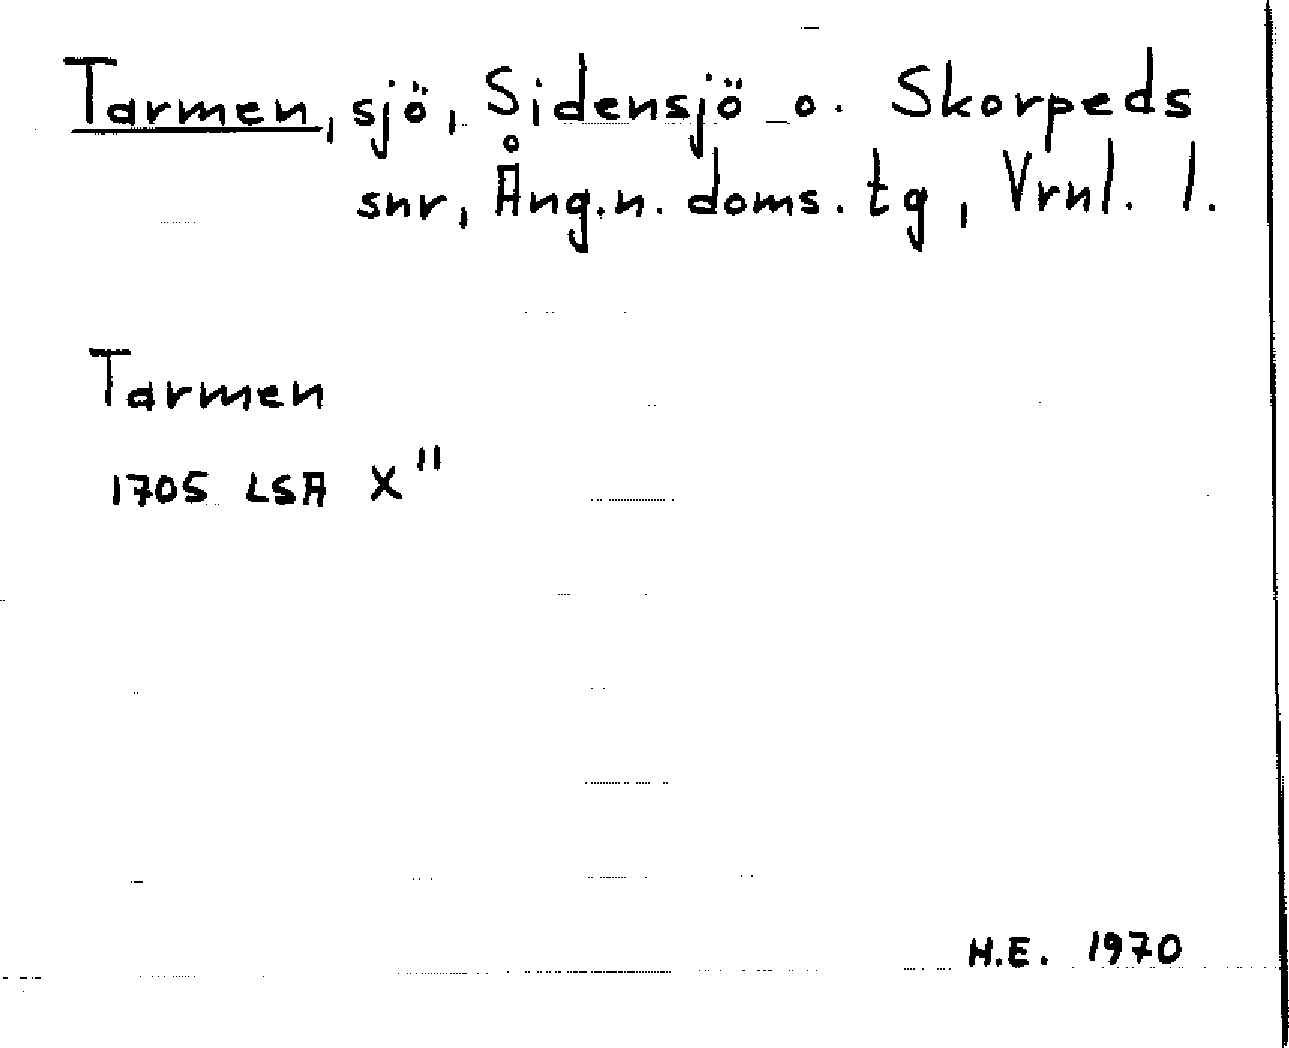 Tarmen, sjö, Sidensjö o. Skorpeds
snr, Ång.n. doms. tg, Vrnl. l.
Tarmen
1705 LSA X"
H.E. 1970